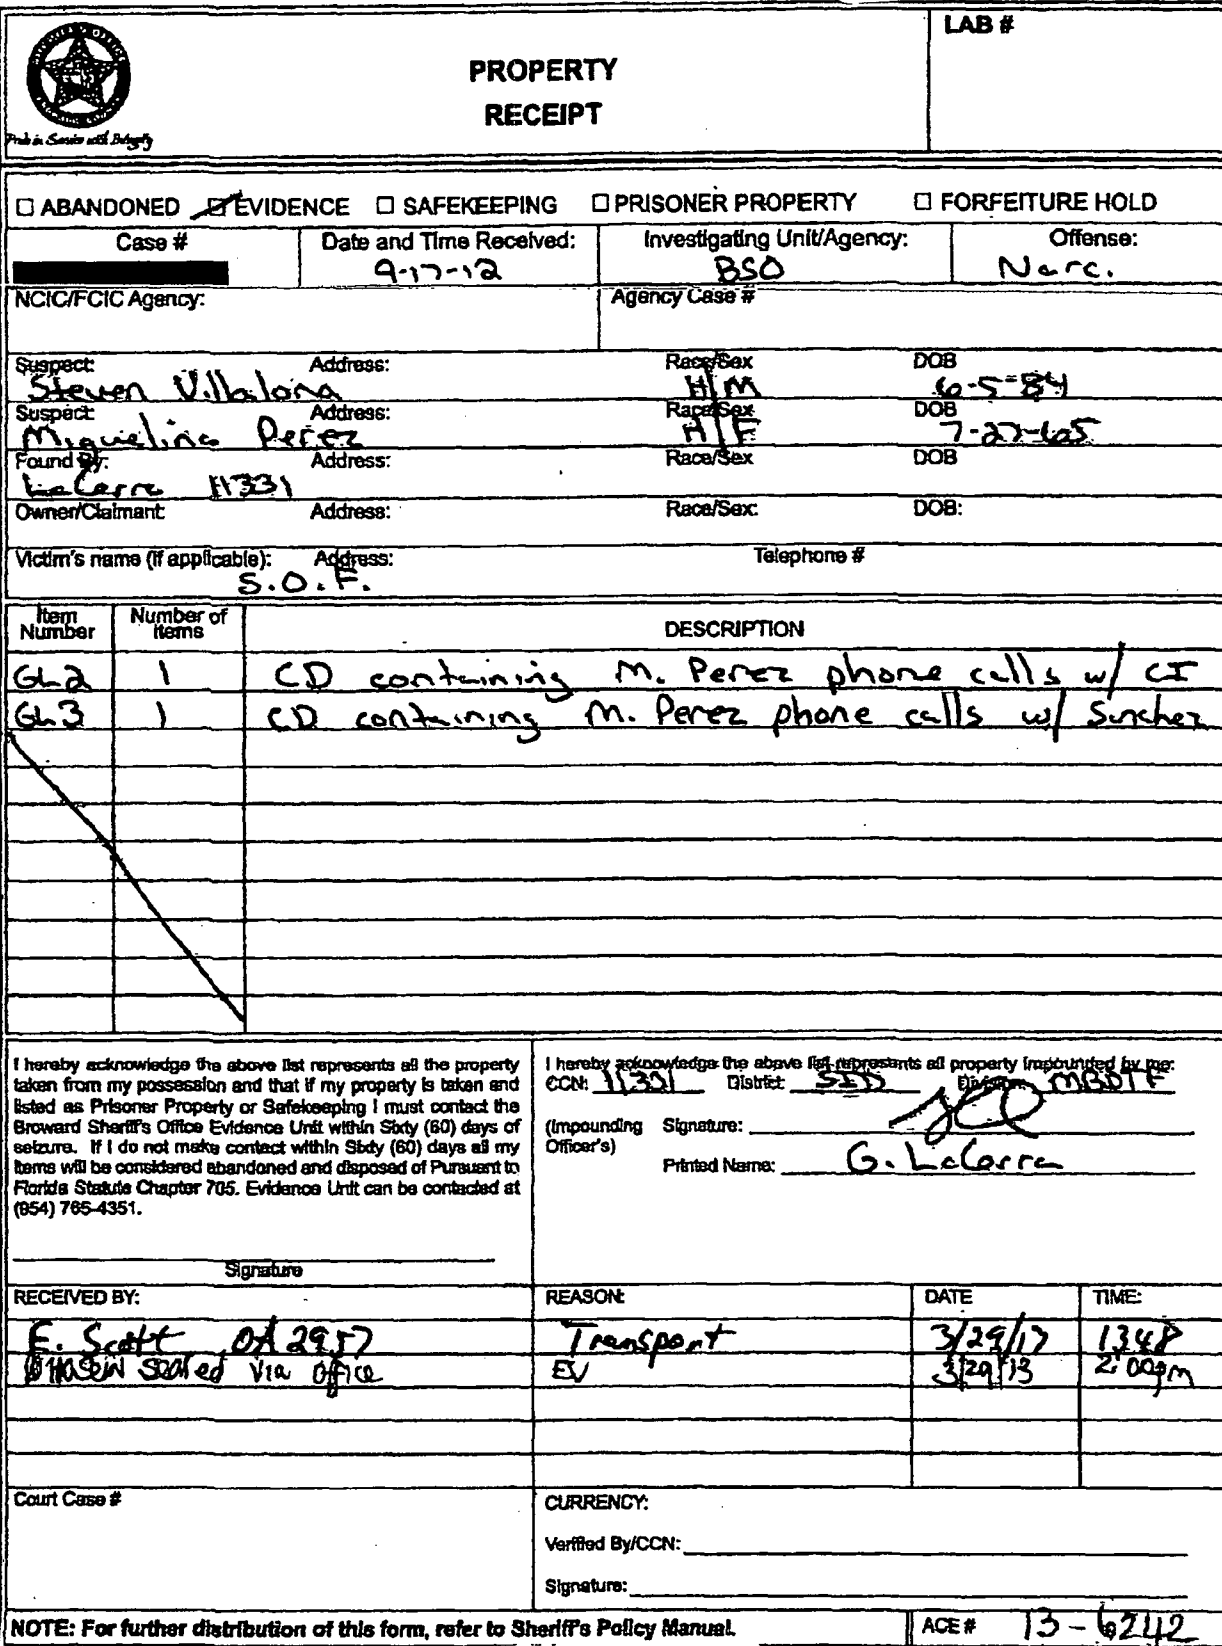 LAB #
PROPERTY
RECEIPT
Pride in Service with Integrity
☐ ABANDONED ☑ EVIDENCE ☐ SAFEKEEPING ☐ PRISONER PROPERTY ☐ FORFEITURE HOLD
Case # Date and Time Received: Investigating Unit/Agency: Offense:
9-17-12 BSO Narc.
NCIC/FCIC Agency: Agency Case #
Suspect: Address: Race/Sex DOB
Steven Villalona H/M 6-5-84
Suspect: Address: Race/Sex DOB
Miquelina Perez H/F 7-27-65
Found By: Address: Race/Sex DOB
LaCerra 11331
Owner/Claimant: Address: Race/Sex: DOB:
Victim's name (if applicable): Address: Telephone #
S.O.F.
Item Number Number of Items DESCRIPTION
GL2 1 CD containing M. Perez phone calls w/ CI
GL3 1 CD containing M. Perez phone calls w/ Sanchez
I hereby acknowledge the above list represents all the property
taken from my possession and that if my property is taken and
listed as Prisoner Property or Safekeeping I must contact the
Broward Sheriff's Office Evidence Unit within Sixty (60) days of
seizure. If I do not make contact within Sixty (60) days all my
items will be considered abandoned and disposed of Pursuant to
Florida Statute Chapter 705. Evidence Unit can be contacted at
(954) 765-4351.
Signature
I hereby acknowledge the above list represents all property impounded by me:
CCN: 11331 District: SID Division: MBDTF
(Impounding Officer's) Signature:
Printed Name: G. LaCerra
RECEIVED BY: REASON: DATE TIME:
E. Scott OA 2957 Transport 3/29/13 1348
sealed via office EV 3/29/13 2:00pm
Court Case # CURRENCY:
Verified By/CCN:
Signature:
NOTE: For further distribution of this form, refer to Sheriff's Policy Manual. ACE # 13-6242